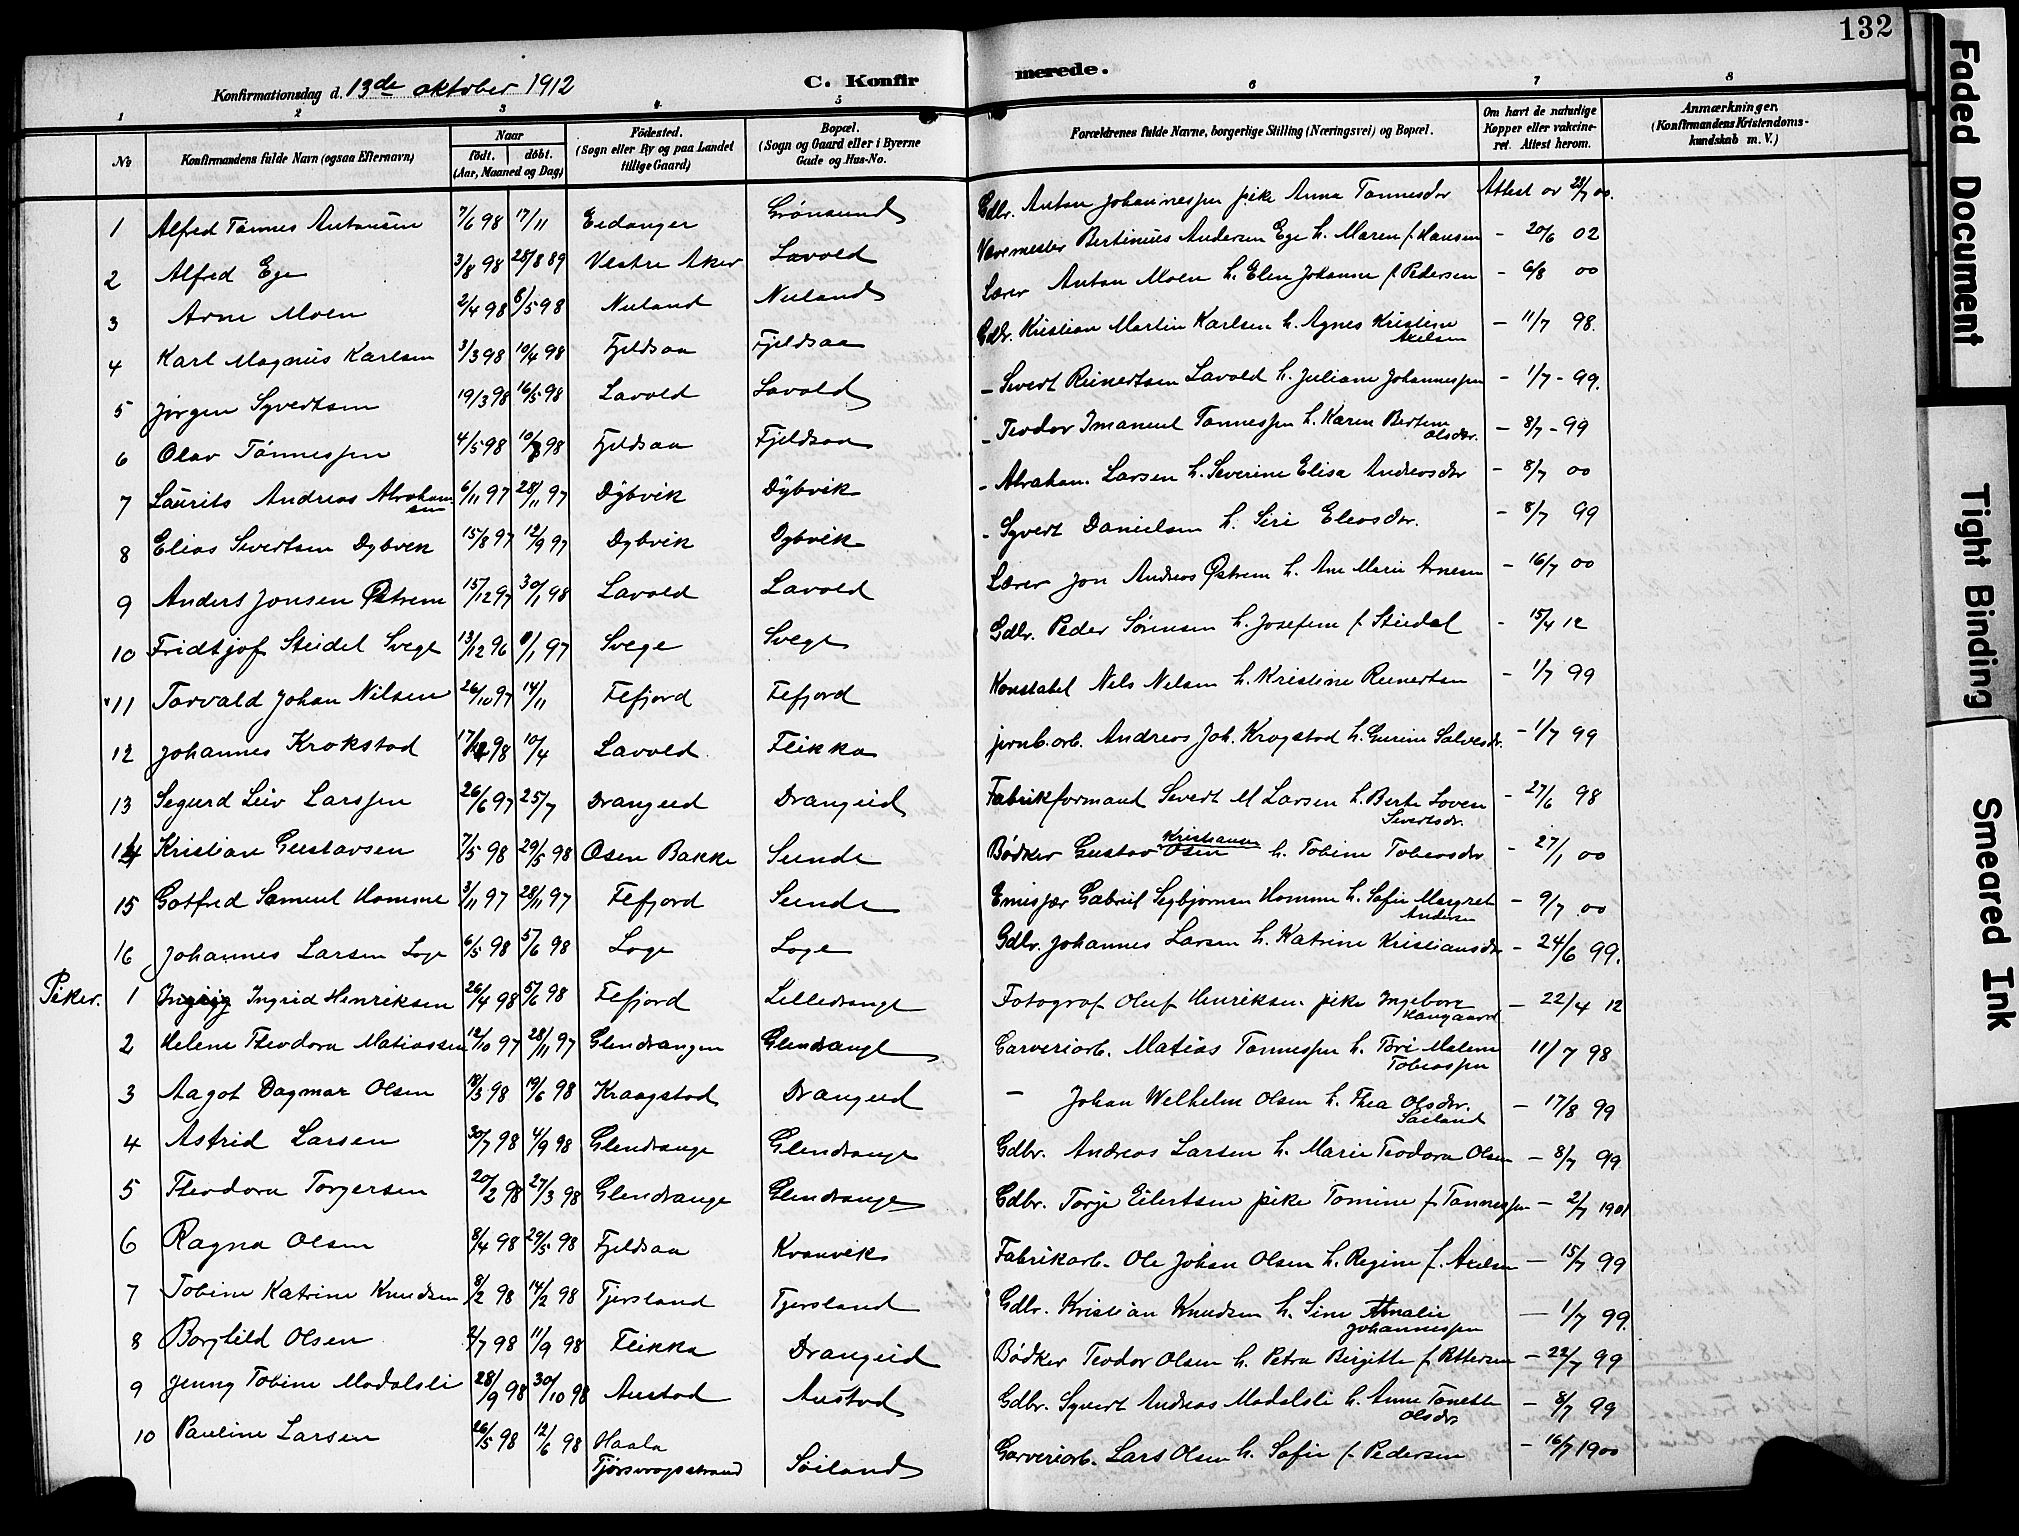 132
Konfirmationsdag d. 13de oktober 1912 C. Konfirmerede.
1 2 3 4 5 6 7 8
No Konfirmandens fulde Navn (ogsaa Efternavn) Naar født. døbt. (Aar, Maaned og Dag) Fødested. (Sogn eller By og paa Landet tillige Gaard) Bopæl. (Sogn og Gaard eller i Byerne Gade og Hus-No. Forældrenes fulde Navne, borgerlige Stilling (Næringsvei) og Bopæl. Om havt de naturlige Kopper eller vakcineret. Attest herom. Anmærkninger. (Konfirmandens Kristendomskundskab m. V.)
1 Alfred Tønnes Antonsen 7/6 98 17/11 Eidanger Grønsund Gdbr. Anton Johannessen pike Anna Tønnesdtr Attest av 28/7 00.
2 Alfred Ege 3/8 98 28/8 89 Vestre Aker Lavold Bertinius Andersen Ege h. Maren f. Hansen - 20/6 02
3 Arne Moen 2/4 98 8/5 98 Nuland Nuland Lærer Anton Moen h. Elen Johanne f. Pedersen - 6/8 00
4 Karl Magnus Karlsen 3/3 98 10/4 98 Fjeldsaa Fjeldsaa Gdbr. Kristian Martin Karlsen h. Agnes Kristine Axelsen - 11/7 98.
5 Jørgen Syvertsen 19/3 98 16/5 98 Lavold Lavold - Sivert Reinertsen Lavold h. Juliane Johannessen - 1/7 - 99.
6 Olav Tønnessen 4/5 98 10/7 98 Fjeldsaa Fjeldsaa - Teodor Imanuel Tønnessen h. Karen Bertine Olsdtr. - 8/7 - 99
7 Laurits Andreas Abrahamsen 6/11 97 28/11 97 Dybvik Dybvik - Abraham Larsen h. Severine Elisa Andreasdtr - 8/7 00
8 Elias Sivertsen Dybvik 15/8 97 12/9 97 Dybvik Dybvik - Syvert Danielsen h. Siri Eliasdtr. - 8/7 99
9 Anders Jonsen Østrem 15/12 97 30/1 98 Lavold Lavold Lærer Jon Andreas Østrem h. Ane Marie Arnesen - 16/7 00
10 Fridtjof Steidel Svege 13/12 96 9/1 97 Svege Svege Gdbr. Peder Sørensen h. Josefine f. Steidel - 15/4 12
11 Torvald Johan Nilsen 26/10 97 14/11 Fefjord Fefjord Konstabel Nils Nilsen h. Kristine Reinertsen - 1/7 99
12 Johannes Krokstad 17/2 98 10/4 Lavold Feikka jernb. arb. Andreas Joh. Krogstad h. Gurine Salvesdtr. - 1/7 99
13 Segurd Leiv Larssen 26/6 97 25/7 Drangeid Drangeid Fabrikformand Sivert M Larsen h. Berte Lovise Sivertsdr. - 27/6 98
14 Kristian Gustavsen 7/5 98 29/5 98 Osen Bakke Sunde Bødker Gustav Kristiansen Osen h. Tobine Tobiasdtr - 27/1 00
15 Gotfred Samuel Homme 3/11 97 28/11 97 Fefjord Sunde Gabriel Segbjørnsen Homme h. Sofie Margret Andersen - 9/7 00
16 Johannes Larsen Loge 6/5 98 5/6 98 Loge Loge Gdbr. Johannes Larsen h. Katrine Kristiansdtr - 24/6 99.
Piker.
1 Ingrid Henriksen 26/4 98 5/6 98 Fefjord Lilledrange Fotograf Oluf Henriksen pike Ingeborg Haugaard - 22/4 12
2 Helene Theodora Matiassen 12/10 97 28/11 97 Glendrangen Glendrange Garveriarb. Matias Tønnessen h. Tori Malene Tobiassen 11/7 98
3 Aagot Dagmar Olsen 18/3 98 19/6 98 Kraagstad Drangeid - Johan Wilhelm Olsen h. Thea Olsdtr. Søiland - 17/8 99
4 Astrid Larsen 30/7 98 4/9 98 Glendrange Glendrange Gdbr. Andreas Larsen h. Marie Teodora Olsen - 8/7 99
5 Theodora Torgersen 20/2 98 27/3 98 Glendrange Glendrange Gdbr. Torje Eilertsen pike Tomine f. Tønnessen - 2/7 1901
6 Ragna Olsen 8/4 98 29/5 98 Fjeldsaa Kvanvik Fabrikarb. Ole Johan Olsen h. Regine f. Axelsen - 15/7 99
7 Tobine Katrine Knudsen 8/2 98 14/2 98 Tjersland Tjersland Gdbr. Kristian Knudsen h. Sine Amalie Johannessen - 1/7 99.
8 Borghild Olsen 2/7 98 11/9 98 Feikka Drangeid Bødker Teodor Olsen h. Petra Birgitte f. Pettersen - 22/7 99
9 Jenny Tobine Modalsli 28/9 98 30/10 98 Austad Austad Gdbr. Syvert Andreas Modalsli h. Anne Tonette Olsdtr - 8/7 99
10 Pauline Larsen 26/5 98 12/6 98 Haala Tjørsvaagstrand Søiland Garveriarb. Lars Olsen h. Sofie f. Pedersen - 16/7 1900
Faded Document
Tight Binding
Smeared Ink